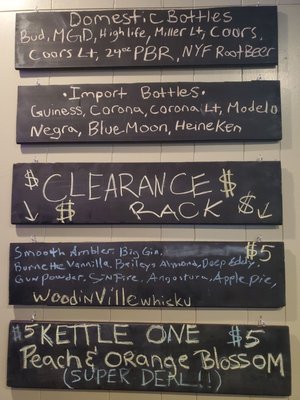 Domestic Bottles
Bud, MGD, High life, Miller Lt, Coors,
Coors Lt, 24oz PBR, NYF Root Beer
• Import Bottles •
Guiness, Corona, Corona Lt, Modelo
Negra, Blue Moon, Heineken
$ CLEARANCE $
↓ $ RACK $ ↓
Smooth Ambler, Big Gin, $5
Burnette Vannilla, Baileys Almond, Deep Eddy
Gun Powder, SinFire, Angostura, Apple Pie,
Woodinville whisky
$5 KETTLE ONE $5
Peach & Orange Blossom
(SUPER DEAL!!)